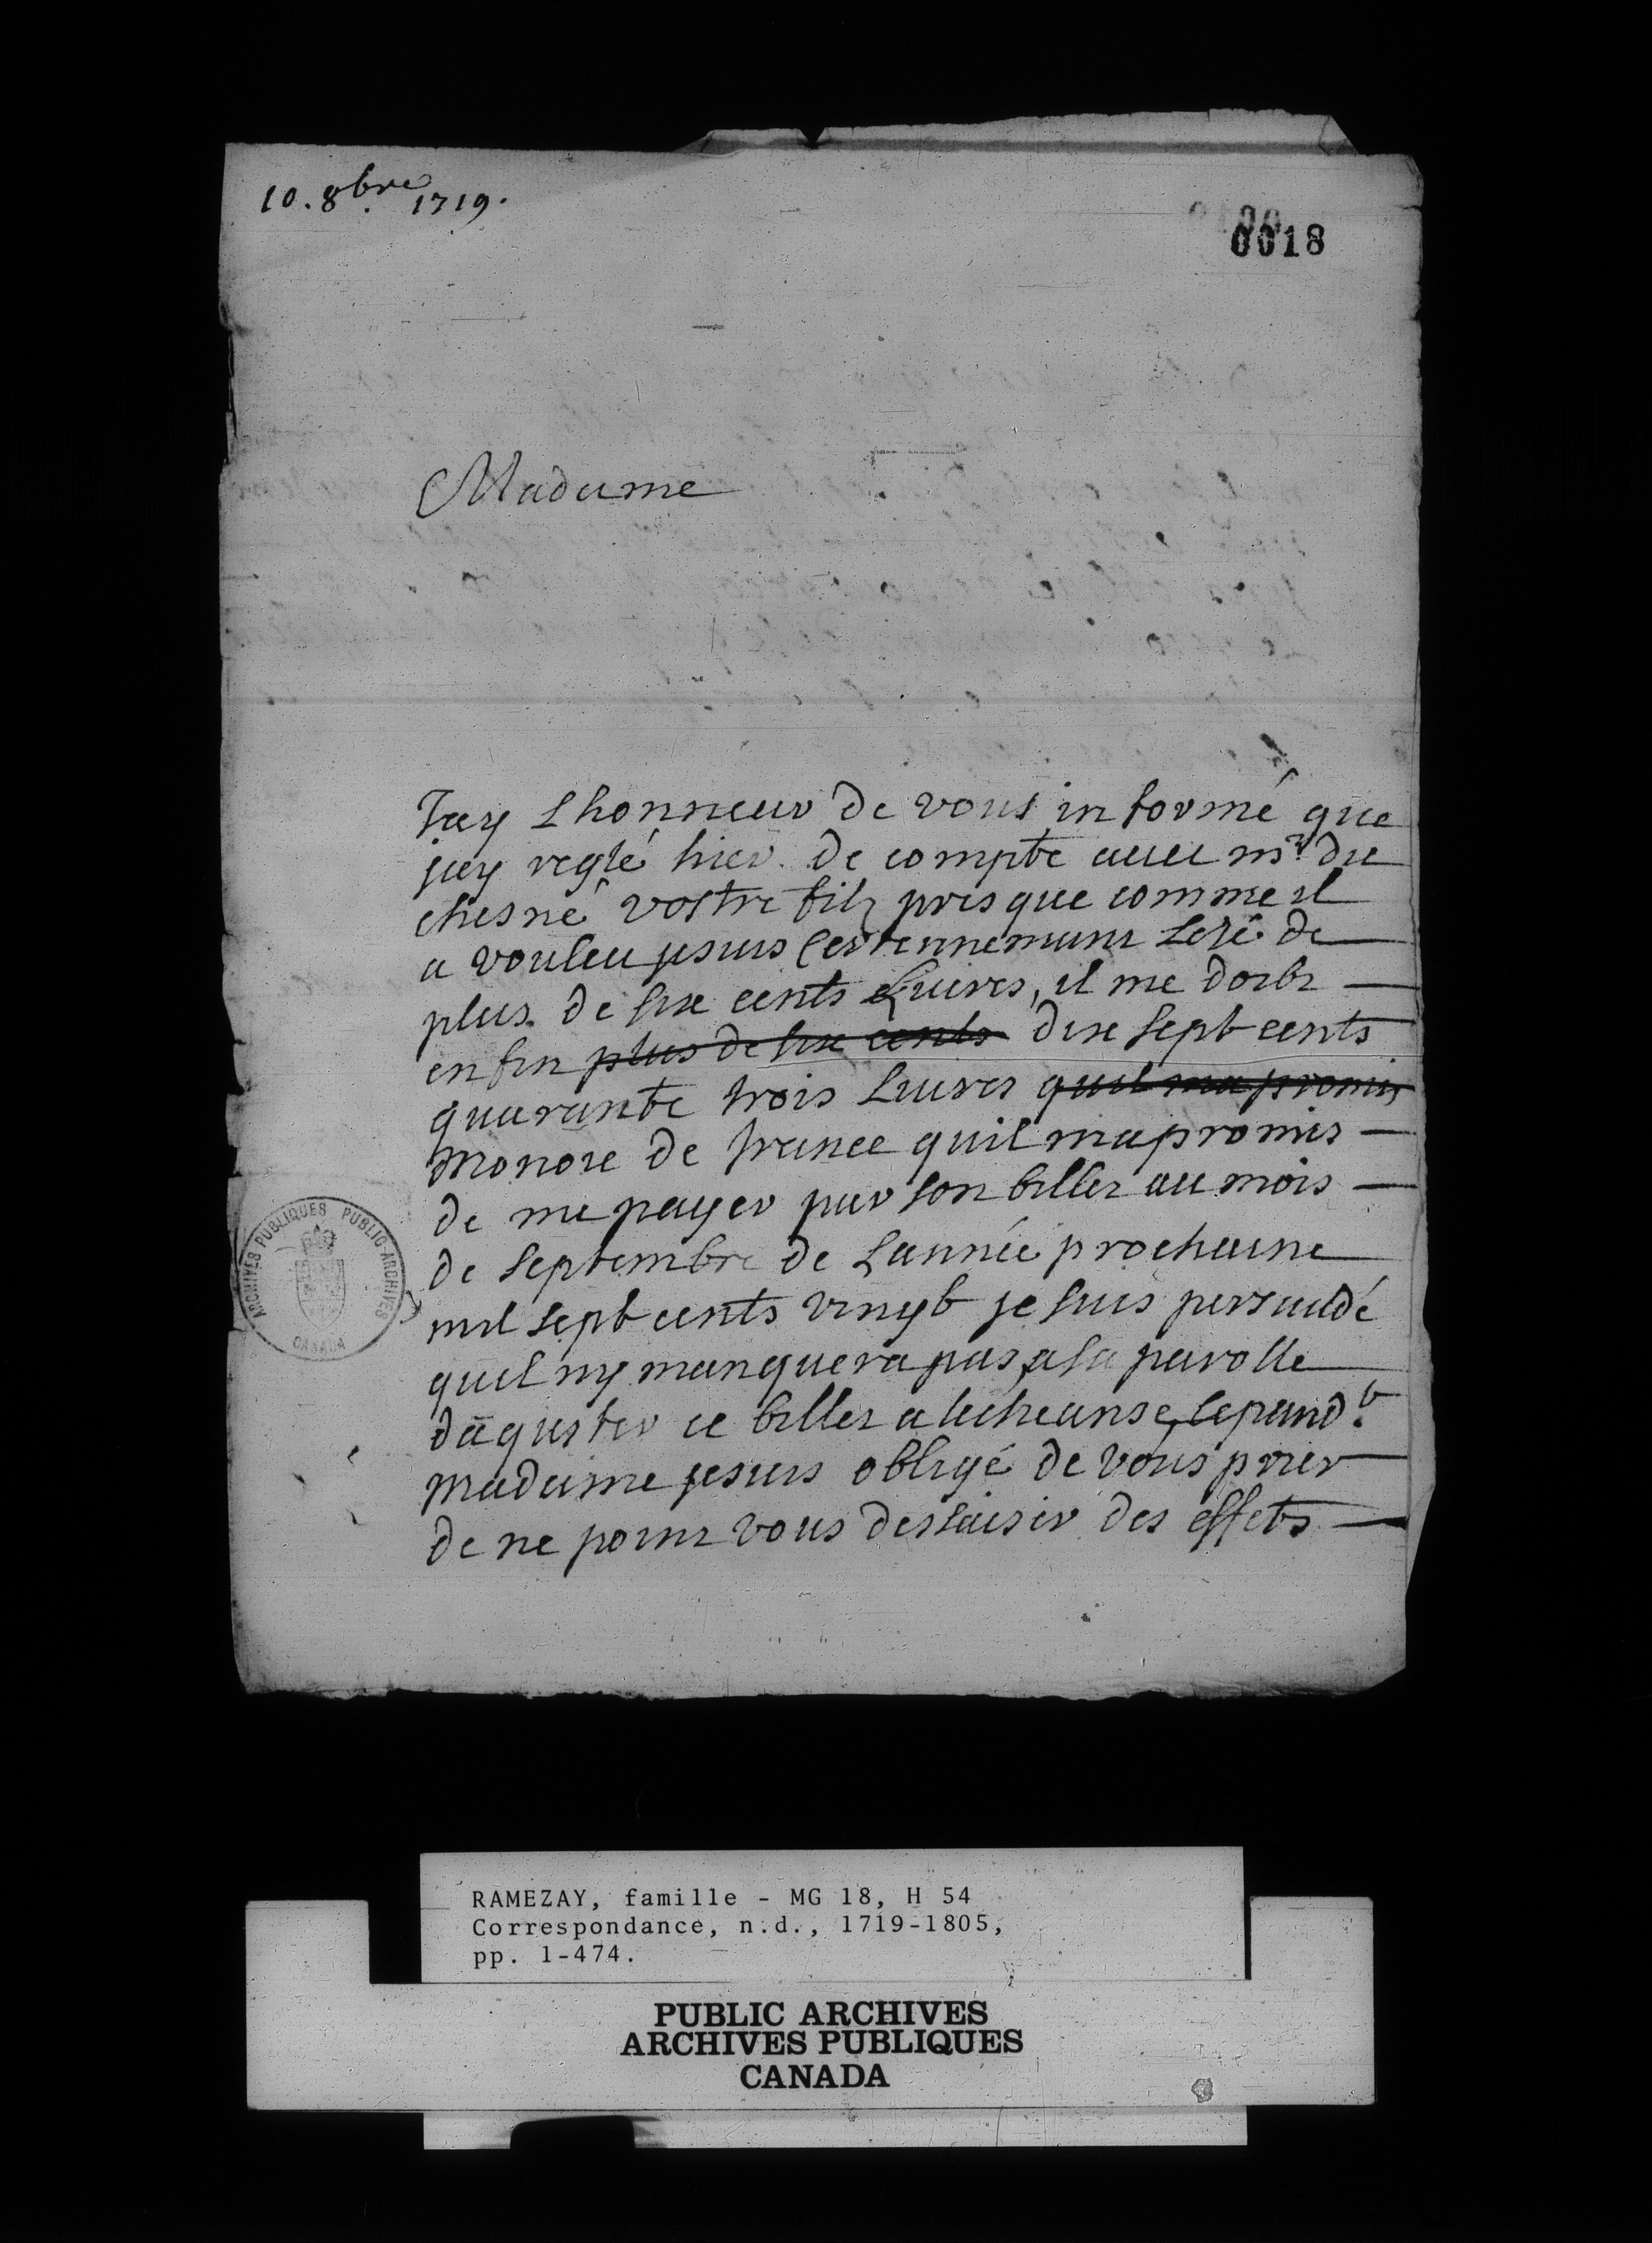 10. 8bre. 1719.
0018
Madame
Jay Lhonneur de vous informé que
jay reglé hier de compte auec mr. du
chesné vostre filz presque comme il
a vouleu jesuis Certennemant Lezé de
plus de six cents Liures, il me doibt
enfin plus de six cents dix sept cents
quarante trois Liures quil ma promis
Monoie de france quil ma promis
de me payer par son billet au mois
de septembre de Lannée prochaine
mil sept cents vingt je suis persuadé
quil ny manquera pas a sa parolle
daquister ce billet a lecheanse, Cepandt.
Madame jesuis obligé de vous prier
de ne point vous dessaisir des effets
ARCHIVES PUBLIQUES PUBLIC ARCHIVES
CANADA
RAMEZAY, famille - MG 18, H 54
Correspondance, n.d., 1719-1805,
pp. 1-474.
PUBLIC ARCHIVES
ARCHIVES PUBLIQUES
CANADA